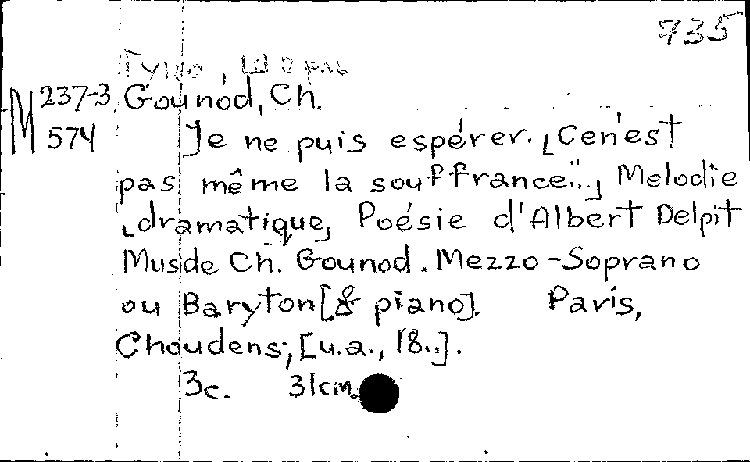 735
Гуно, Шарль
M 237-3 Gounod, Ch.
574 Je ne puis espérer. [Cen'est
pas même la souffrance"..] Melodie
[dramatique] Poésie d'Albert Delpit
Mus de Ch. Gounod. Mezzo-Soprano
ou Baryton [& piano]. Paris,
Choudens, [u.a., 18..].
3c. 31cm.